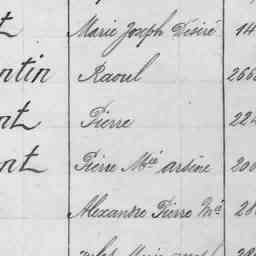 t Marie Joseph Désiré 14
ntin Raoul 266
nt Pierre 224
nt Pierre Mie arsène 200
Alexandre Pierre Mie 28